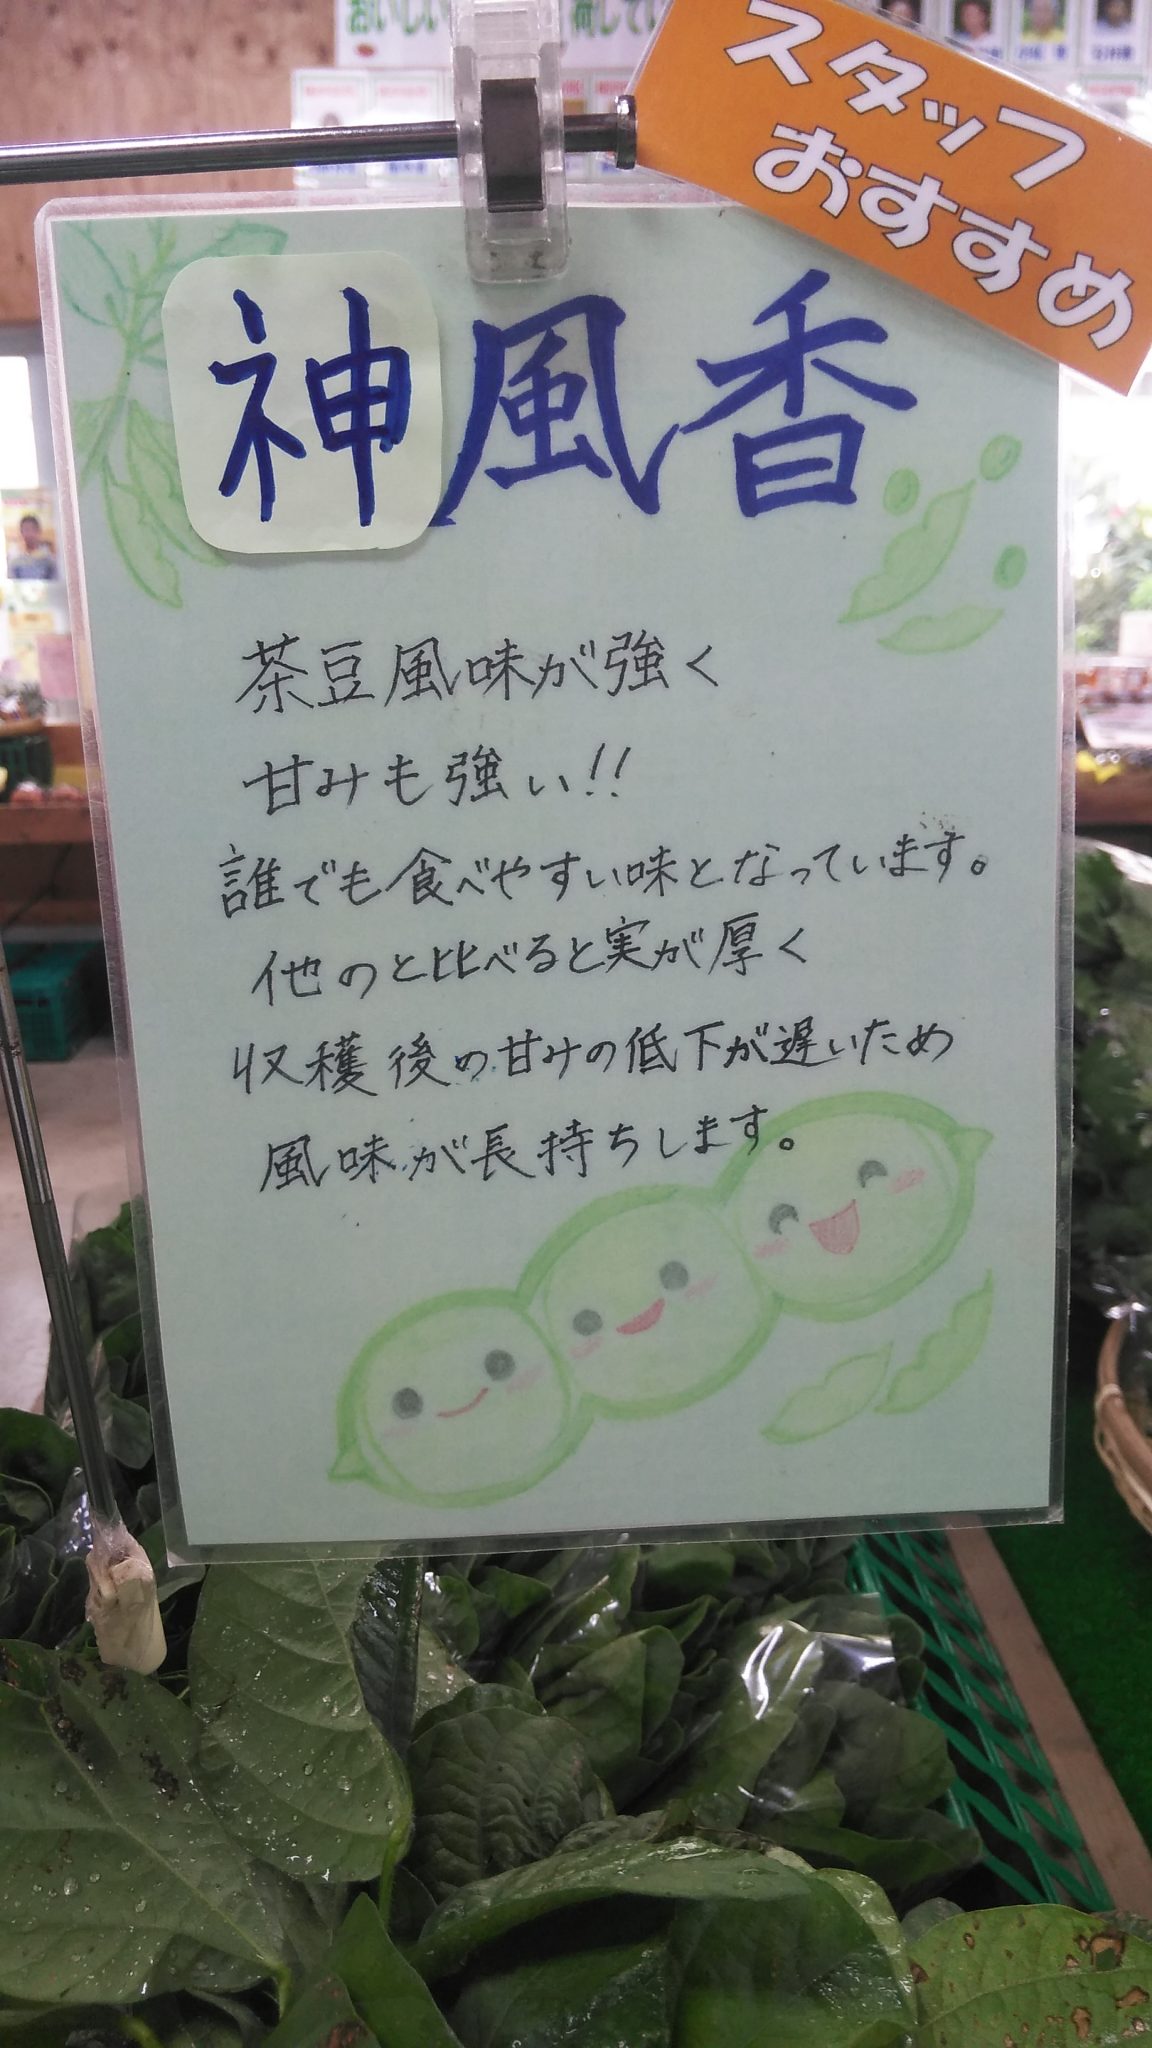 スタッフ
おすすめ
神風香
茶豆風味が強く
甘みも強い!!
誰でも食べやすい味となっています。
他のと比べると実が厚く
収穫後の甘みの低下が遅いため
風味が長持ちします。